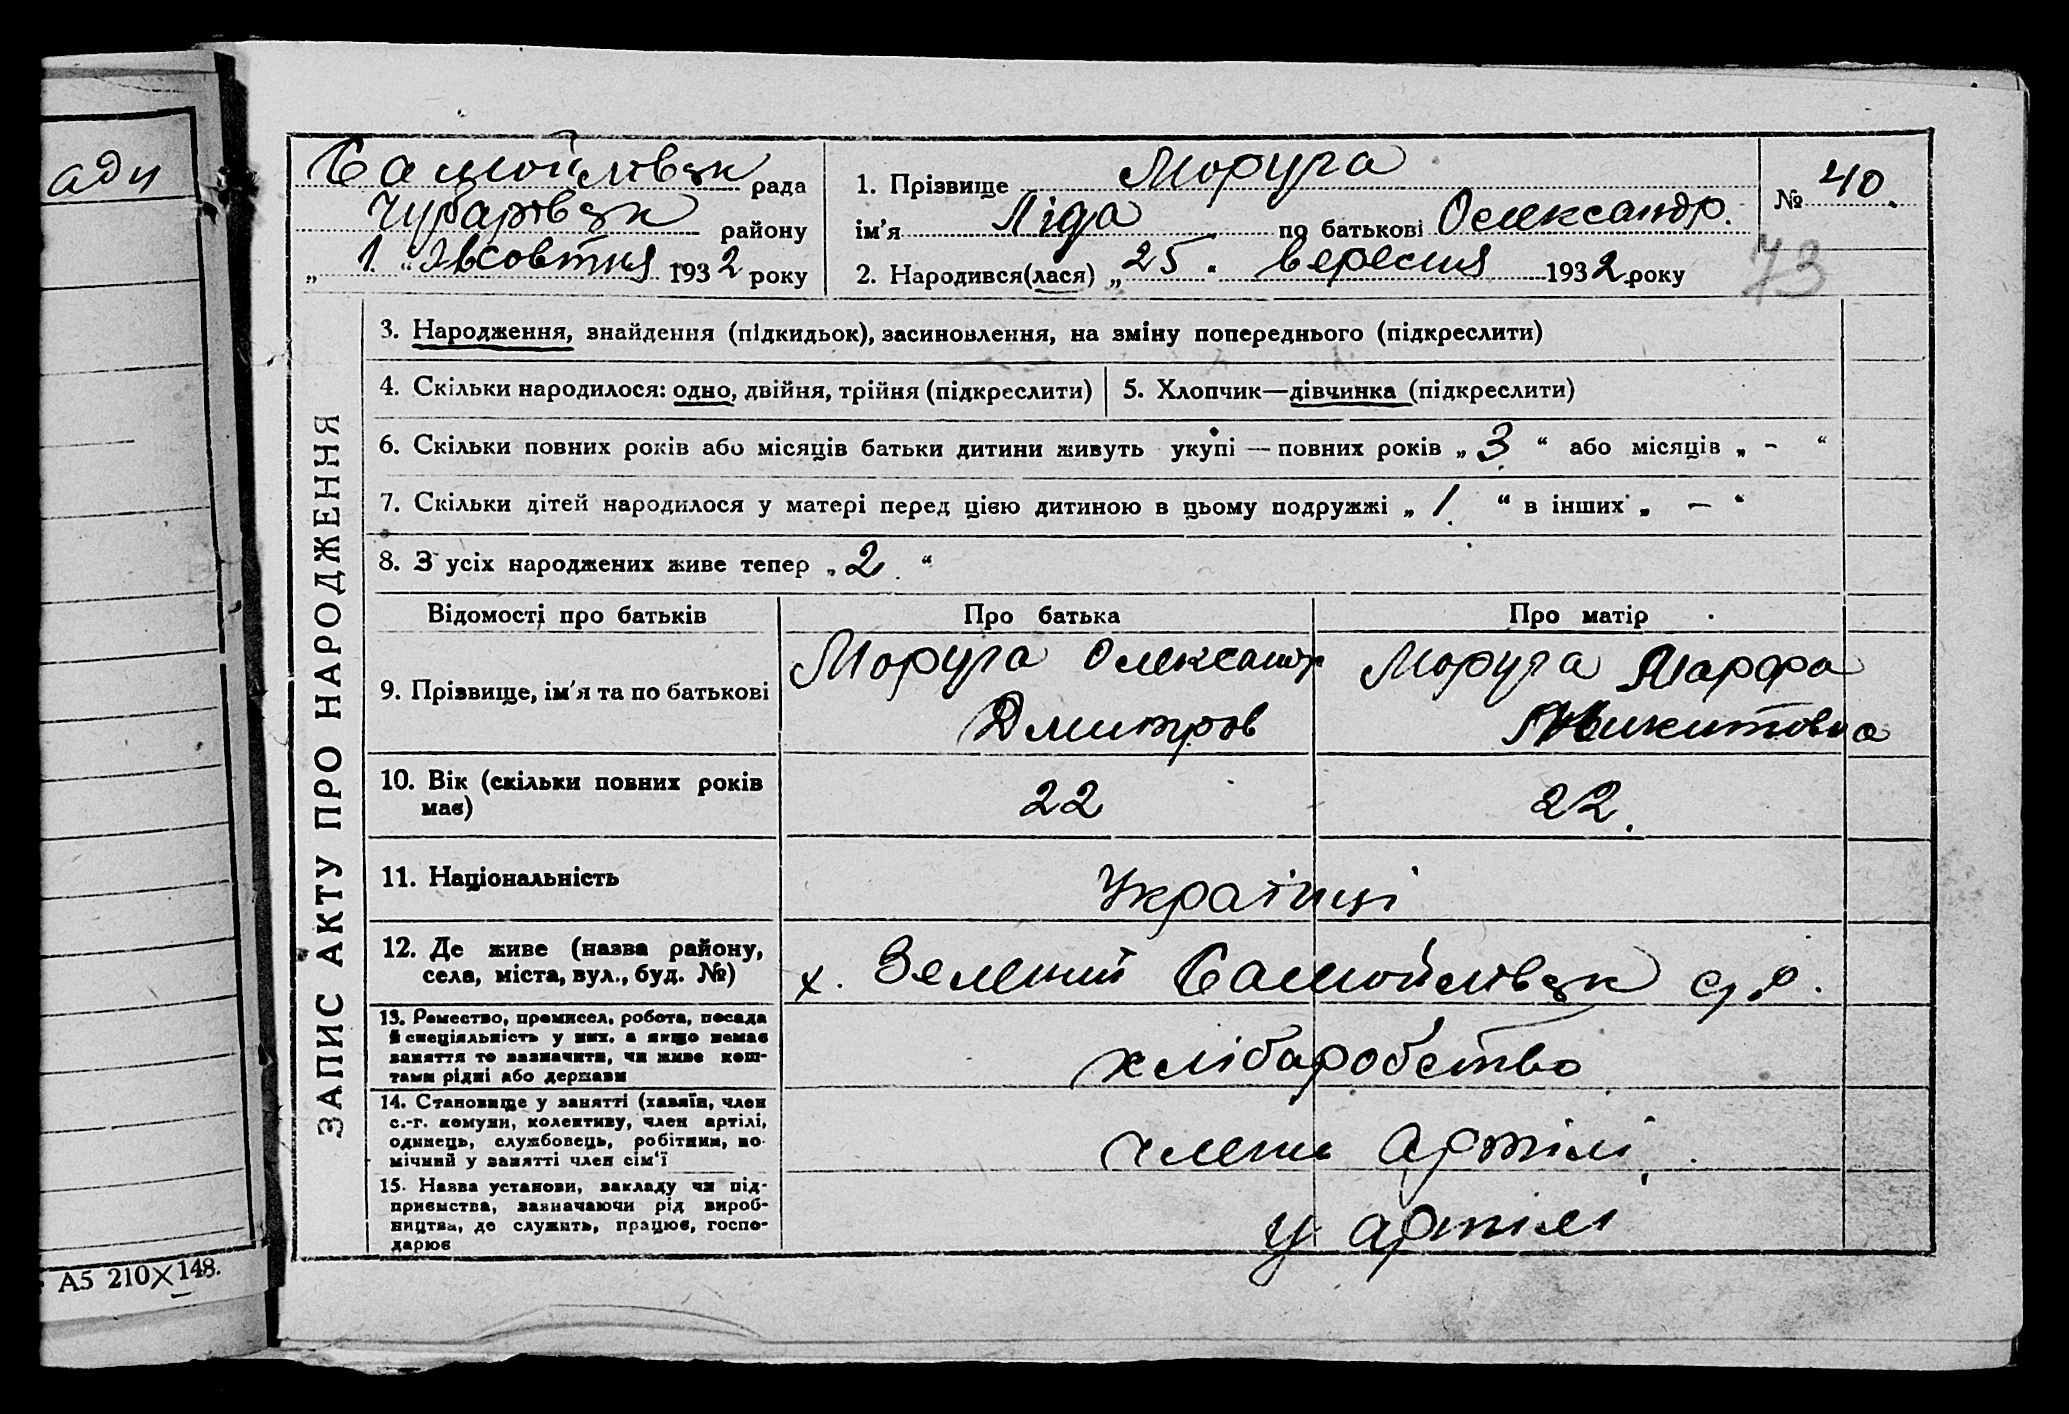 ади
А5 210×148.
Самойлівськ рада
Чубарівськ району
„ 1. “ Жовтня 1932 року
1. Прізвище Моруга
ім’я Ліда по батькові Олександр.
2. Народився(лася) „ 25 “ вересня 1932 року
№ 40.
73
ЗАПИС АКТУ ПРО НАРОДЖЕННЯ
3. Народження, знайдення (підкидьок), засиновлення, на зміну попереднього (підкреслити)
4. Скільки народилося: одно, двійня, трійня (підкреслити)
5. Хлопчик—дівчинка (підкреслити)
6. Скільки повних років або місяців батьки дитини живуть укупі — повних років „ 3 “ або місяців „ - “
7. Скільки дітей народилося у матері перед цією дитиною в цьому подружжі „ 1. “ в інших „ — “
8. З усіх народжених живе тепер „ 2 “
Відомості про батьків
Про батька
Про матір
9. Прізвище, ім’я та по батькові
Моруга Олександр
Дмитров
Моруга Марфа
Никитовна
10. Вік (скільки повних років
має)
22
22.
11. Національність
Українці
12. Де живе (назва району,
села, міста, вул., буд. №)
х. Зелений Самойлівськ с/р.
13. Ремество, промисел, робота, посада
й спеціяльність у них, а якщо немає
заняття то зазначити, чи живе кош-
тами рідні або держави
хлібаробство
14. Становище у занятті (хазяїн, член
с.-г. комуни, колективу, член артілі,
одинець, службовець, робітник, по-
мічний у занятті член сім’ї
члени артілі
15. Назва установи, закладу чи під-
приємства, зазначаючи рід вироб-
ництва, де служить, працює, госпо-
дарює
у артілі